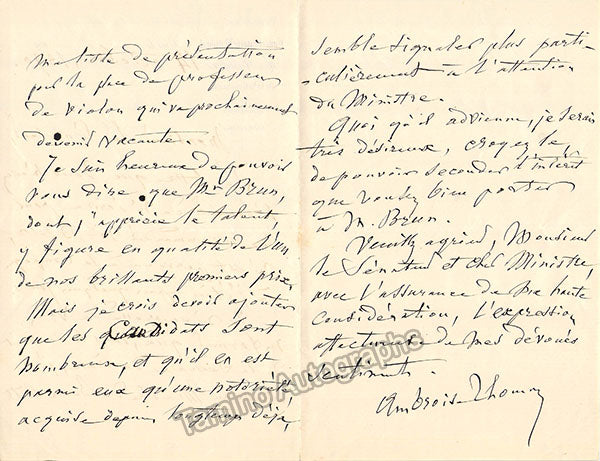 ma liste de présentation
pour la place de professeur
de violon qui va prochainement
devenir vacante.
Je suis heureux de pouvoir
vous dire que Mr Brun,
dont j'apprécie le talent,
y figure en qualité de l'un
de nos brillants premiers prix.
Mais je crois devoir ajouter
que les Candidats sont
nombreux, et qu'il en est
parmi eux qu'une notoriété,
acquise depuis longtemps déjà,
semble signaler plus parti-
-culièrement à l'attention
du Ministre.
Quoi qu'il advienne, je serais
très désireux, croyez le,
de pouvoir seconder l'intérêt
que voulez bien porter
à M. Brun.
Veuillez agréer, Monsieur
le Sénateur et cher Ministre,
avec l'assurance de ma haute
considération, l'expression
affectueuse de mes dévoués
sentiments.
Ambroise Thomas
Tamino Autographs